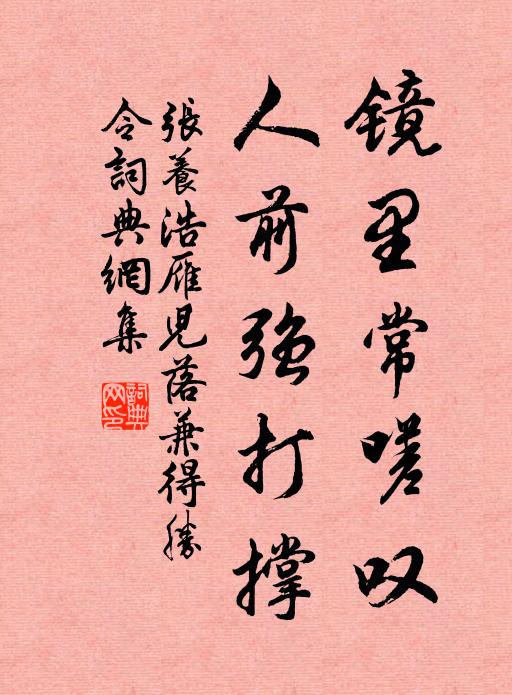 镜里常嗟叹
人前强打撑
張養浩雁兒落兼得勝
令詞典網集
詞典
网印